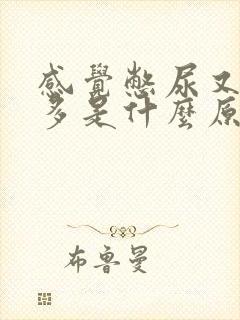 感覺憋尿又
多是什麼原
布魯曼